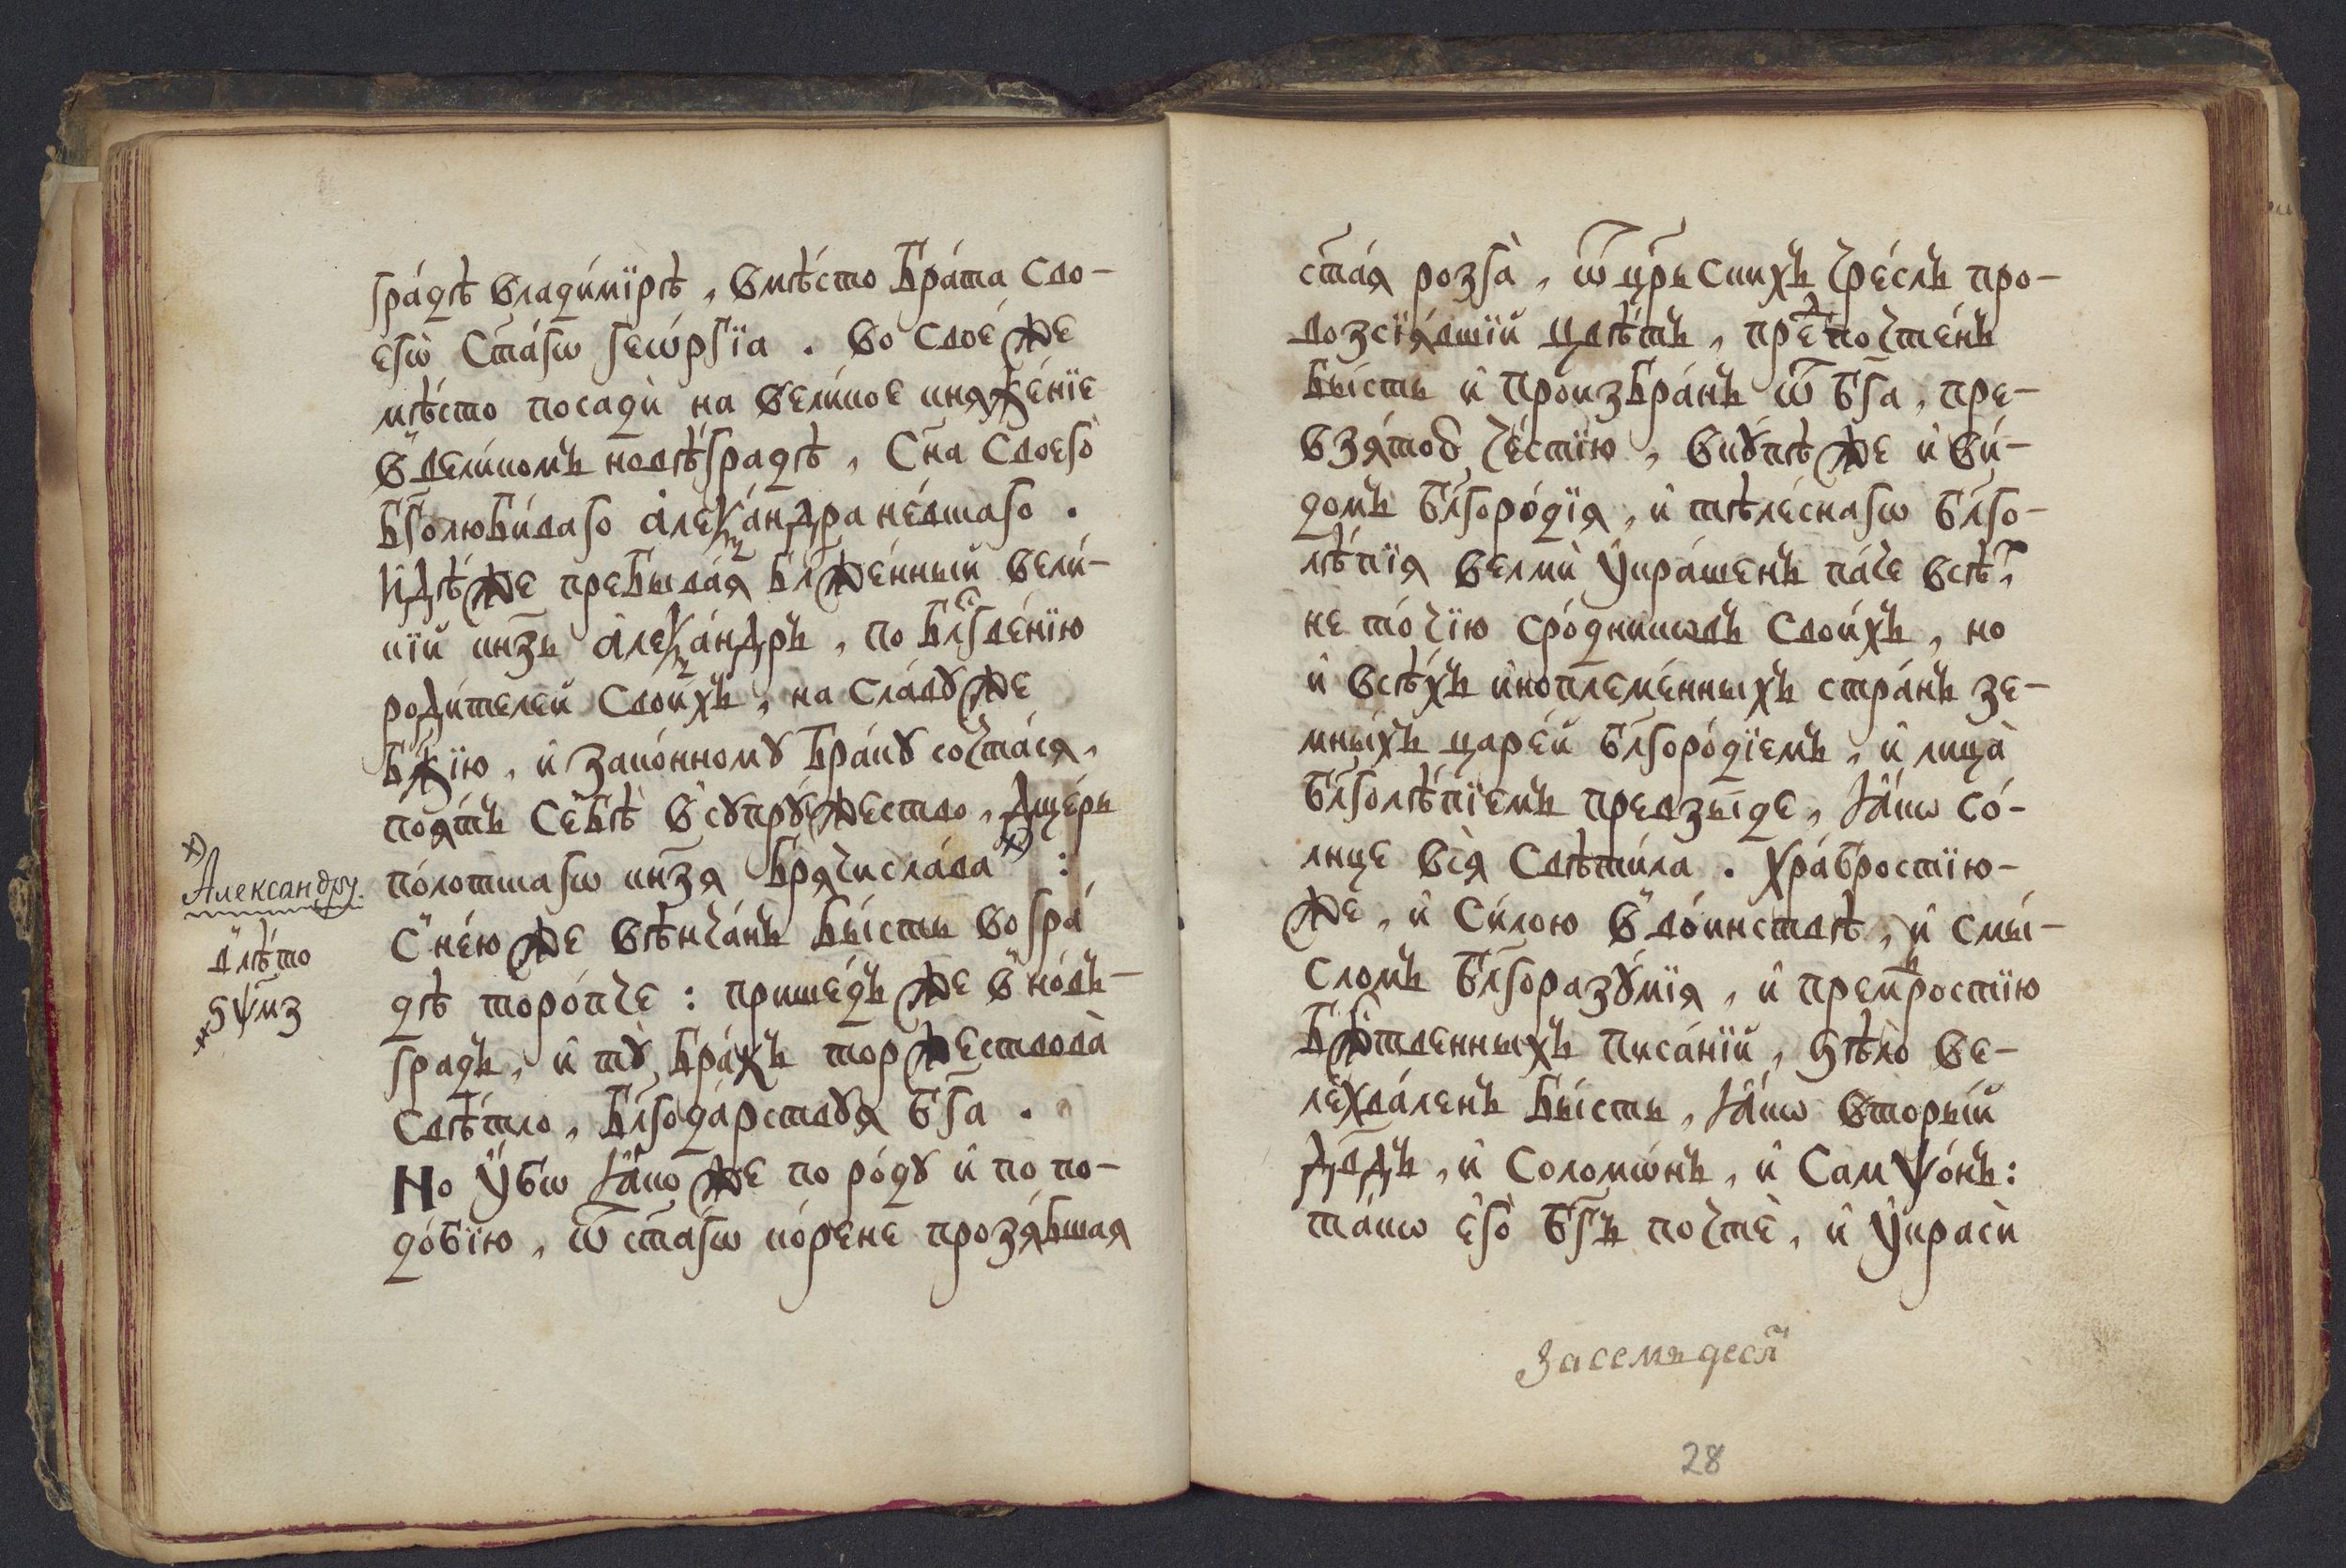 гра́дѣ влади́мїрѣ, вмѣ́сто бра́та сво-
егѡ̀ ст҃а́гѡ геѡ́ргїа. во свое́ же
мѣ́сто посадѝ на вели́кое кня́же́нїе
в̾вели́комъ новѣ́градѣ, сн҃а своего̀
бг҃олюби́ваго але́ѯандра не́вшаго.
идѣ́же пребыва́я бл҃же́нный вели́-
кїй кн҃зь але́ѯандръ, по блгⷭ҇ве́нїю
роди́телей свои́хъ, на сла́ву́же
бж҃їю, и҆ зако́нному бра́ку сочта́ся,
поя́тъ себѣ̀ в̾супру́жество, дще́рь
по́лотшагѡ кн҃зя брячисла́ва х) :
с̾не́ю же вѣ́нча́нъ бы́сть во гра́
дѣ торо́пче : прише́дъ же в̾но́въ-
градъ, и҆ ту̀ бра́къ торжествова̀
свѣ́тло, бл҃года́рствуя бг҃а.
Но у҆́бѡ ꙗ҆́ко же по ро́ду и҆ по по-
до́бїю, ѿ ст҃а́гѡ ко́рене прозя́бшая
х)
Александру.
в̾лѣ́то
ѕ҂ѱ҃мз
ст҃а́я розга̀, ѿ цр҃ьскихъ чре́слъ про-
возсїя́вшїй цвѣ́тъ, преⷣпочте́нъ
бы́сть и҆ произбра́нъ ѿ бг҃а, пре-
взя́тою че́стїю, вку́пѣ же и҆ ви́-
домъ бл҃горо́дїя, и҆ тѣле́снагѡ бл҃го-
лѣ́пїя велмѝ у҆кра́шенъ па́че всѣ́ⷯ,
не то́чїю сро́дникѡвъ свои́хъ, но
и҆ всѣ́хъ и҆ноплеме́нныхъ стра́нъ зе-
мны́хъ царе́й бл҃горо́дїемъ, и҆ лица̀
бл҃голѣ́пїемъ превзы́де, ꙗ҆́кѡ со́-
лнце всѧ̀ свѣти́ла. хра́бростїю-
же, и҆ си́лою в̾во́инствѣ, и҆ смы́-
сломъ бл҃горазу́мїя, и҆ прем҃ростїю
бж҃твенныхъ писа́нїй, ѕѣло̀ ве-
лехва́ленъ бы́сть, ꙗ҆́кѡ вторы́й
дв҃дъ, и҆ соломѡ́нъ, и҆ самѱо́нъ:
та́кѡ е҆го̀ бг҃ъ почтѐ, и҆ у҆красѝ
засемьдесⷮя
28